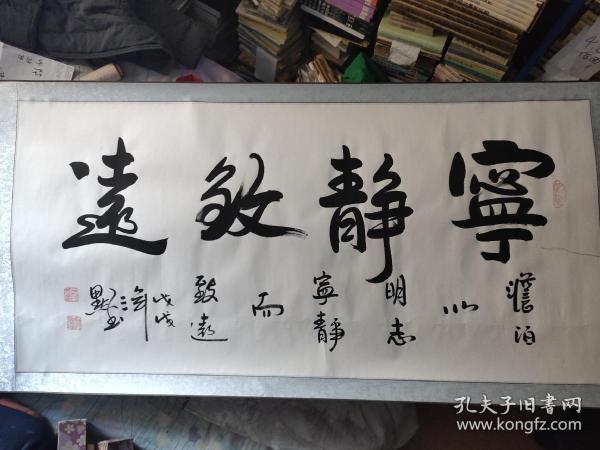 寧靜致遠
澹泊
以
明志
寧靜
而
致遠
戊戌
墨
孔夫子旧书网
www.kongfz.com